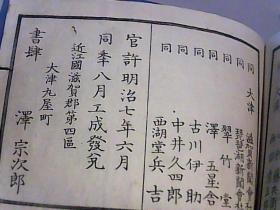 大津 滋賀新聞會社
同 琵琶湖新聞會社
同 翠竹堂
同 澤五星舎
同 古川伊助
同 中井久四郎
同 西湖堂兵吉
官許明治七年六月
同年八月工成發兌
近江國滋賀郡第四區
大津丸屋町
書肆 澤宗次郎